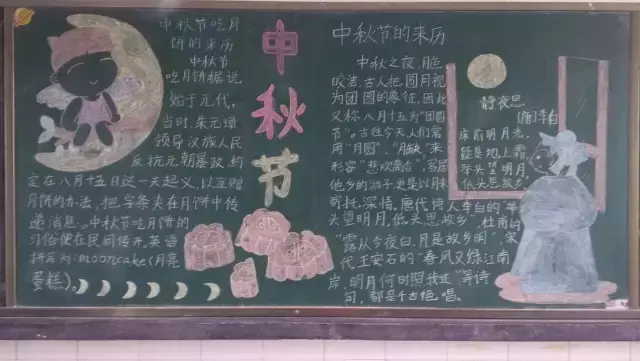 中秋节吃月
饼的来历
中秋节
吃月饼据说
始于元代，
当时，朱元璋
领导汉族人民
反抗元朝暴政，约
定在八月十五日这一天起义，以互赠
月饼的办法，把字条夹在月饼中传
递消息。中秋节吃月饼的
习俗便在民间传开，英语
拼写为：mooncake（月亮
蛋糕）。
中秋节
中秋节的来历
中秋之夜，月色
皎洁，古人把圆月视
为团圆的象征，因此
又称八月十五为“团圆
节”。古往今天人们常
用“月圆”、“月缺”来
形容“悲欢离合”，客居
他乡的游子更是以月来
寄托深情。唐代诗人李白的“举
头望明月，低头思故乡”，杜甫的
“露从今夜白，月是故乡明”，宋
代王安石的“春风又绿江南
岸，明月何时照我还”等诗
句，都是千古绝唱。
静夜思
[唐]李白
床前明月光，
疑是地上霜。
举头望明月，
低头思故乡。